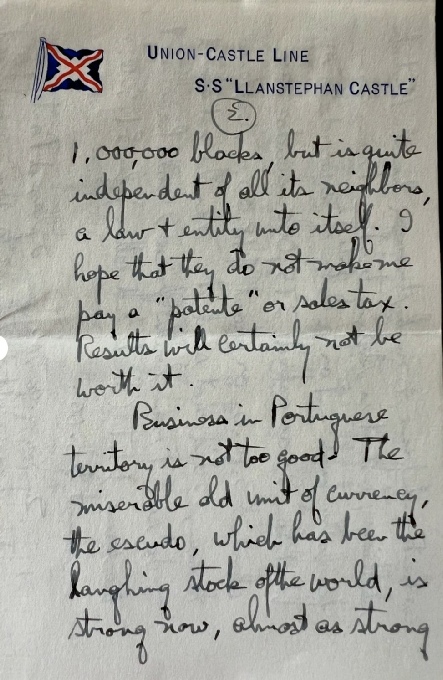 UNION-CASTLE LINE
S·S "LLANSTEPHAN CASTLE"
1,000,000 blacks, but is quite
independent of all its neighbors,
a law + entity unto itself. I
hope that they do not make me
pay a "patente" or sales tax.
Results will certainly not be
worth it.
Business in Portuguese
territory is not too good. The
miserable old unit of currency,
the escudo, which has been the
laughing stock of the world, is
strong now, almost as strong